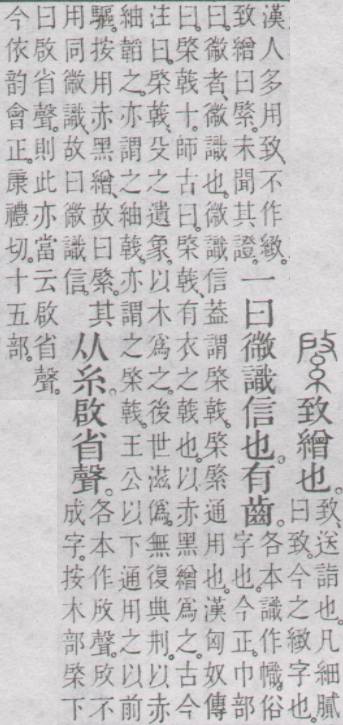 綮致繒也。
致、送詣也。凡細膩
曰致。今之緻字也。
漢人多用致、不作緻。
致繒曰綮。未聞其證。
一曰微識信也。有齒。
各本識作幟。俗
字也。今正。巾部
曰。微者、微識也。微識信葢謂棨戟。棨綮通用也。漢匈奴傳
曰。棨戟十。師古曰。棨戟、有衣之戟也。以赤黑繒爲之。古今
注曰。棨戟、殳之遺象。以木爲之。後世滋僞。無復典刑。以赤
紬韜之。亦謂之紬戟。亦謂之棨戟。王公以下通用之以前
驅。按用赤黑繒、故曰綮。其
用同微識、故曰微識信。
从糸。啟省聲。
各本作聲。不
成字。按木部棨下
曰啟省聲。則此亦當云啟省聲。
今依韵會正。康禮切。十五部。